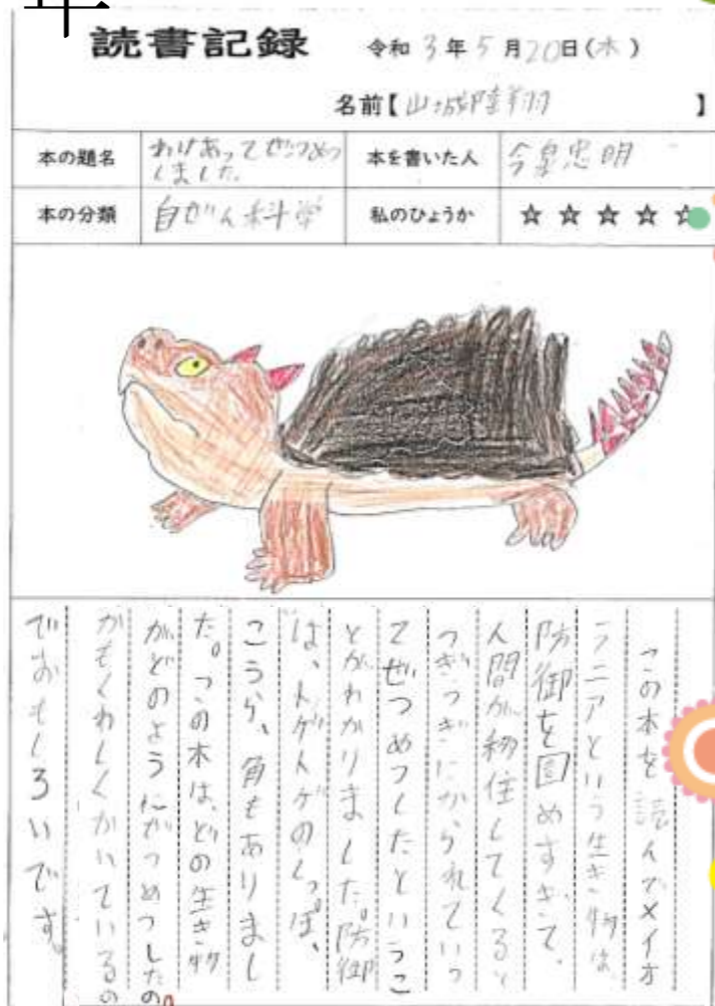 年
読書記録
令和3年5月20日(木)
名前【山城陸翔】
本の題名
わけあってぜつめつ
しました。
本を書いた人
今泉忠明
本の分類
自ぜん科学
私のひょうか
☆☆☆☆☆
この本を読んでメイオ
ラニアという生き物は、
防御を固めすぎて、
人間が移住してくると
つぎつぎにかられていっ
てぜつめつしたというこ
とがわかりました。防御
は、トゲトゲのしっぽ、
こうら、角もありまし
た。この本は、どの生き物
がどのようにぜつめつしたの
かもくわしくかいているの
でおもしろいです。